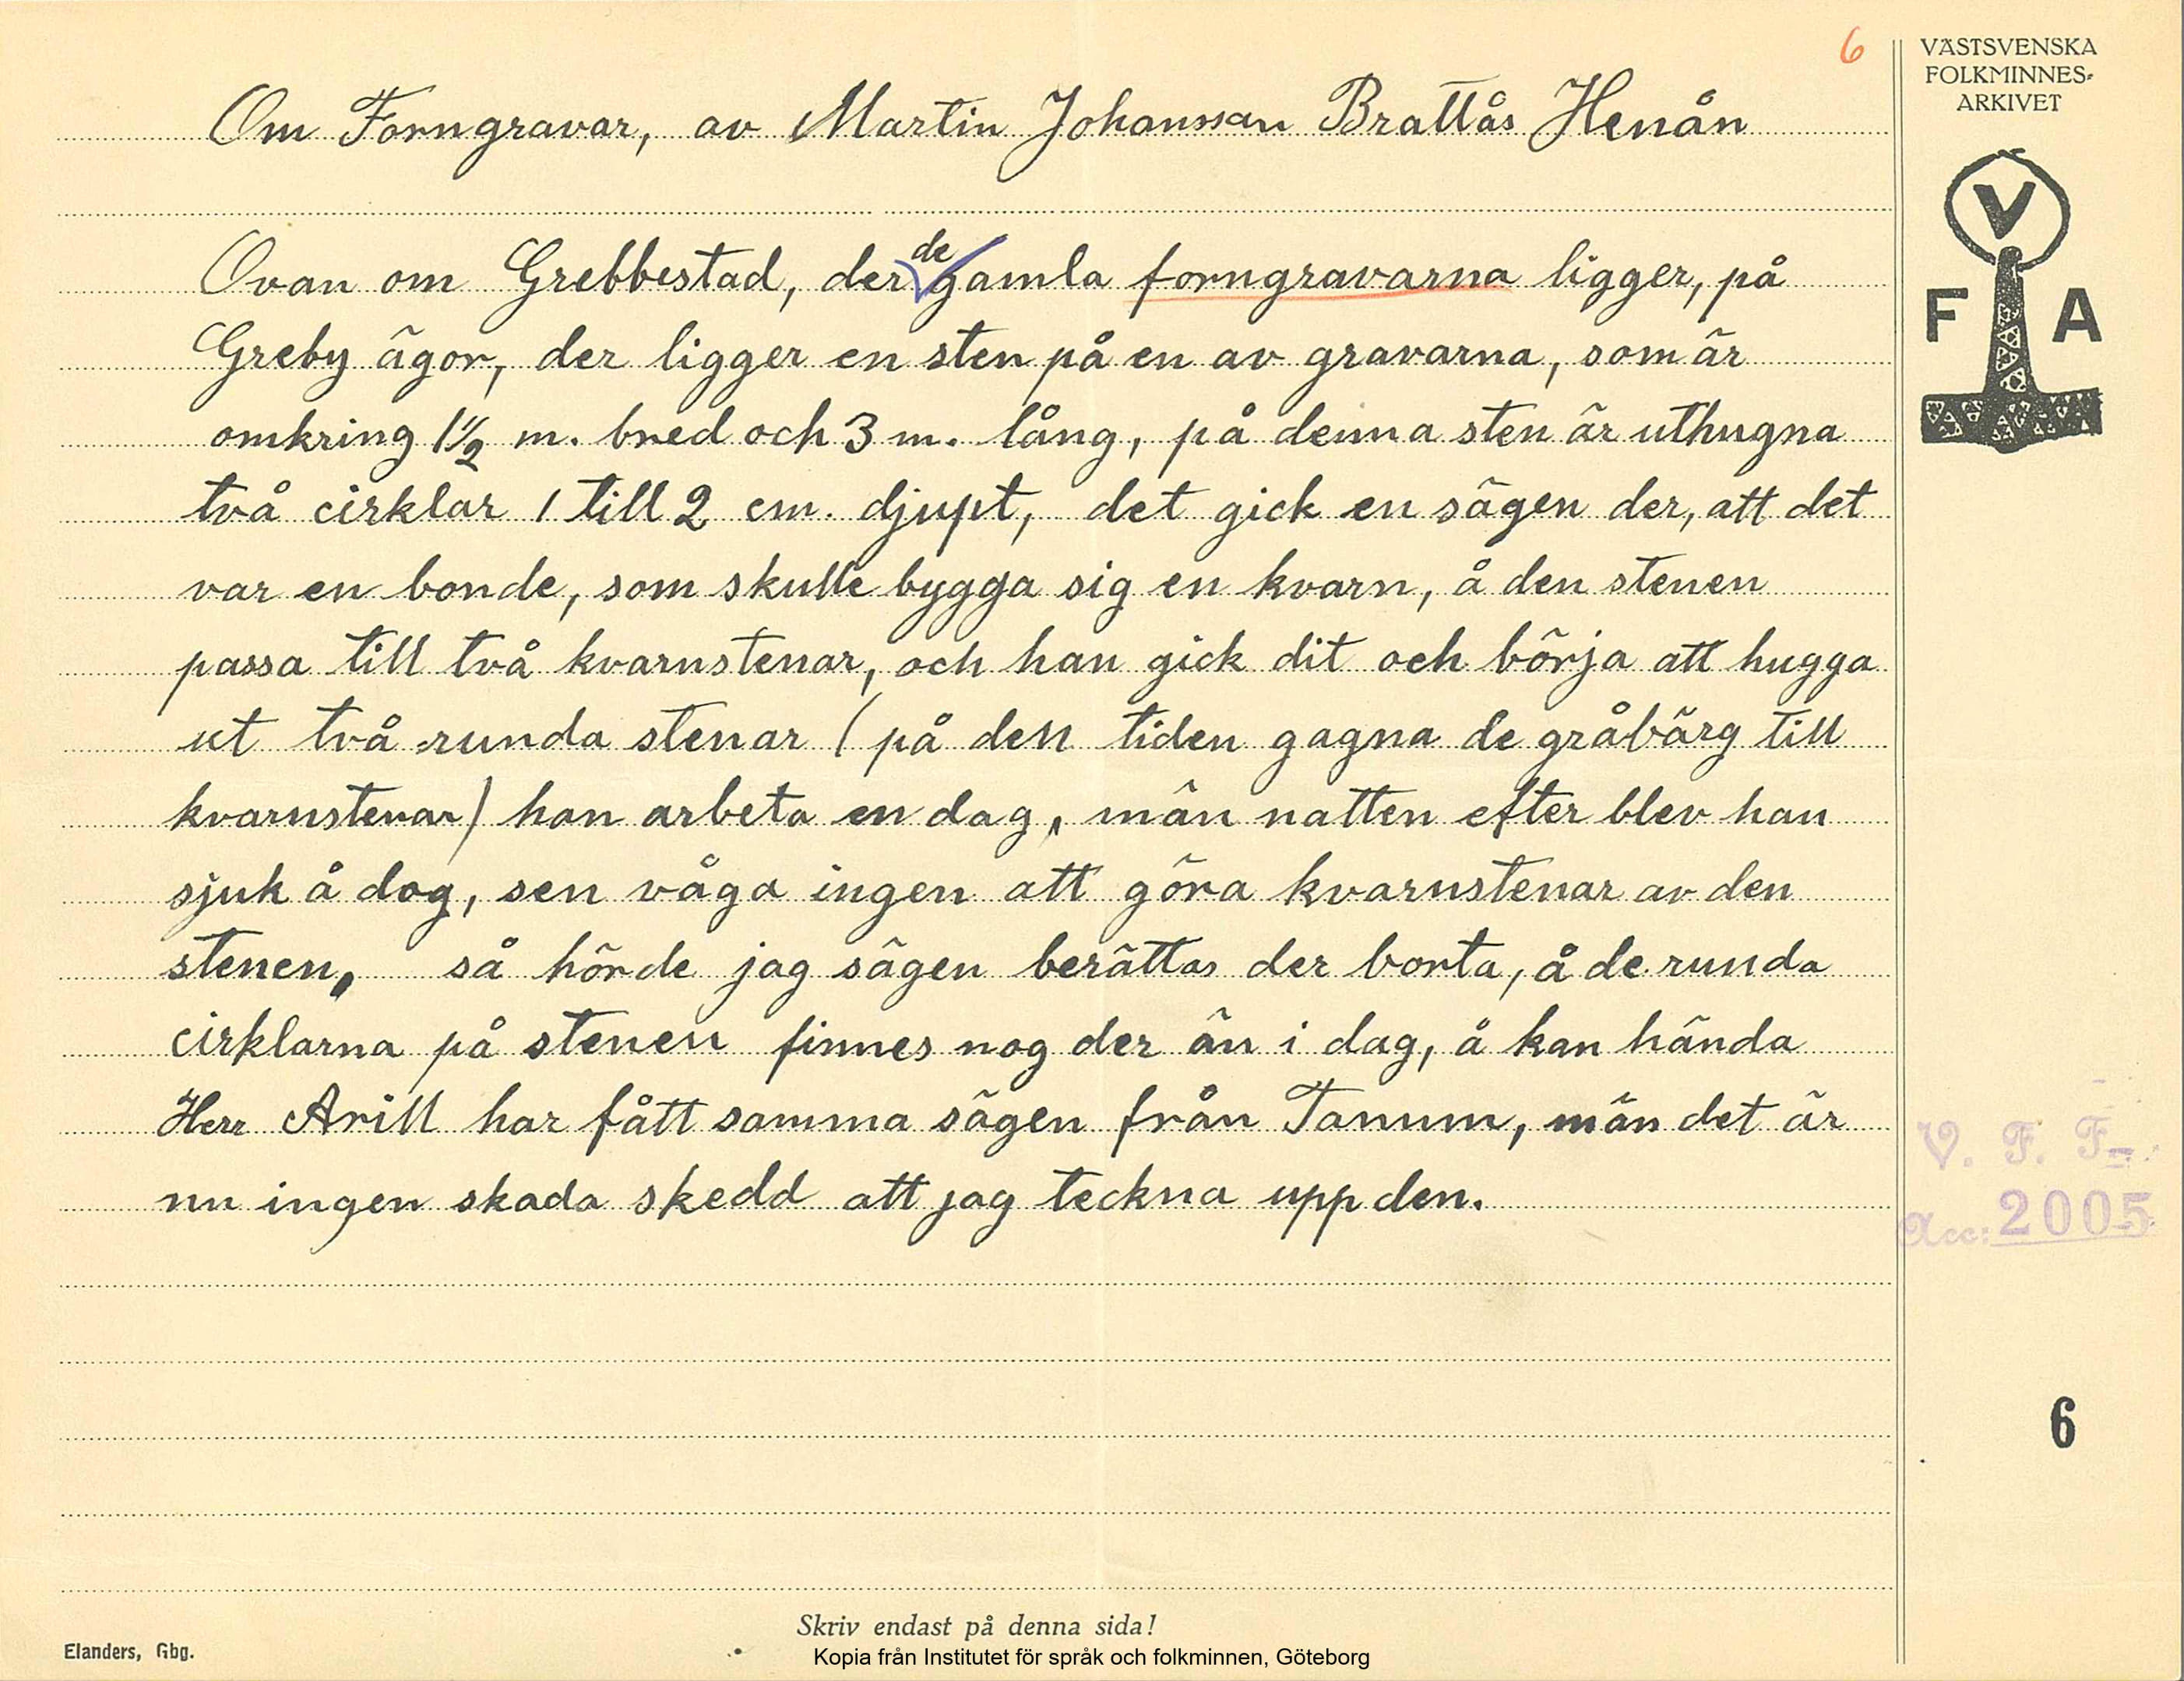 6
VÄSTSVENSKA
FOLKMINNES-
ARKIVET
V
F A
Om Forngravar, av Martin Johansson Brattås Henån
Ovan om Grebbestad, der de gamla forngravarna ligger, på
Greby ägor, der ligger en sten på en av gravarna, som är
omkring 1½ m. bred och 3 m. lång, på denna sten är uthugna
två cirklar 1 till 2 cm. djupt, det gick en sägen der, att det
var en bonde, som skulle bygga sig en kvarn, å den stenen
passa till två kvarnstenar, och han gick dit och börja att hugga
ut två runda stenar (på den tiden gagna de gråbärg till
kvarnstenar) han arbeta en dag, män natten efter blev han
sjuk å dog, sen våga ingen att göra kvarnstenar av den
stenen, så hörde jag sägen berättas der borta, å de runda
cirklarna på stenen finnes nog der än i dag, å kan hända
Herr Arill har fått samma sägen från Tanum, män det är
nu ingen skada skedd att jag teckna upp den.
V. F. F.
Acc: 2005
6
Skriv endast på denna sida!
Elanders, Gbg.
Kopia från Institutet för språk och folkminnen, Göteborg